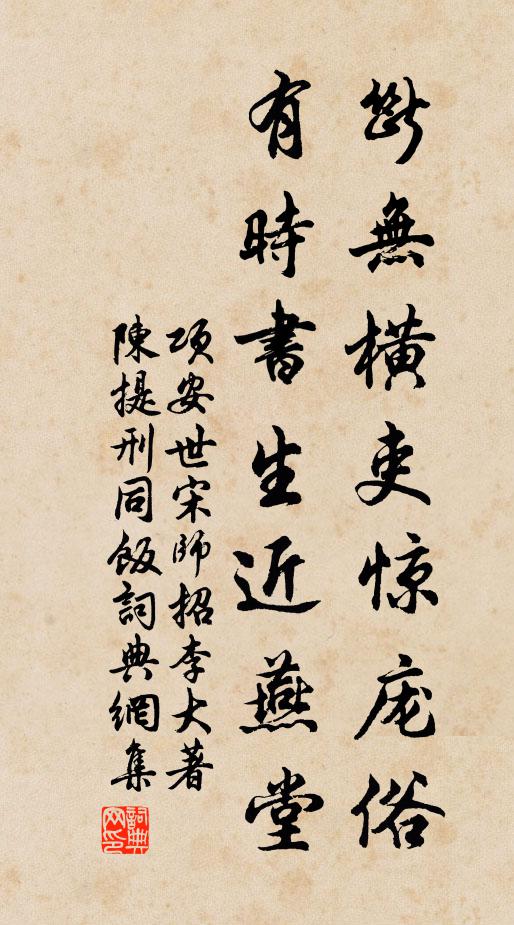 斷無橫吏惊庞俗
有時書生近燕堂
項安世宋師招李大著
陳提刑同飯詞典網集
詞典网印